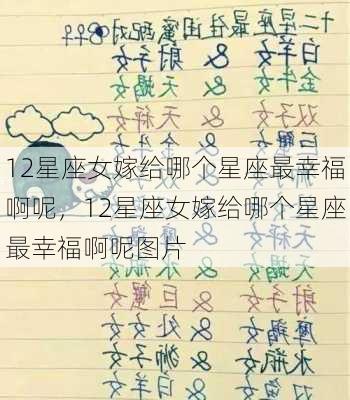 十二星座最佳闺蜜配对
白羊女 & 射手女
金牛女 & 天蝎女
双子女 & 天秤女
巨蟹女 &
12星座女嫁给哪个星座最幸福
啊呢，12星座女嫁给哪个星座
最幸福啊呢图片
天蝎女 &
射手女 & 巨蟹女
摩羯女 & 处女女
水瓶女 & 狮子女
双鱼女 & 白羊女